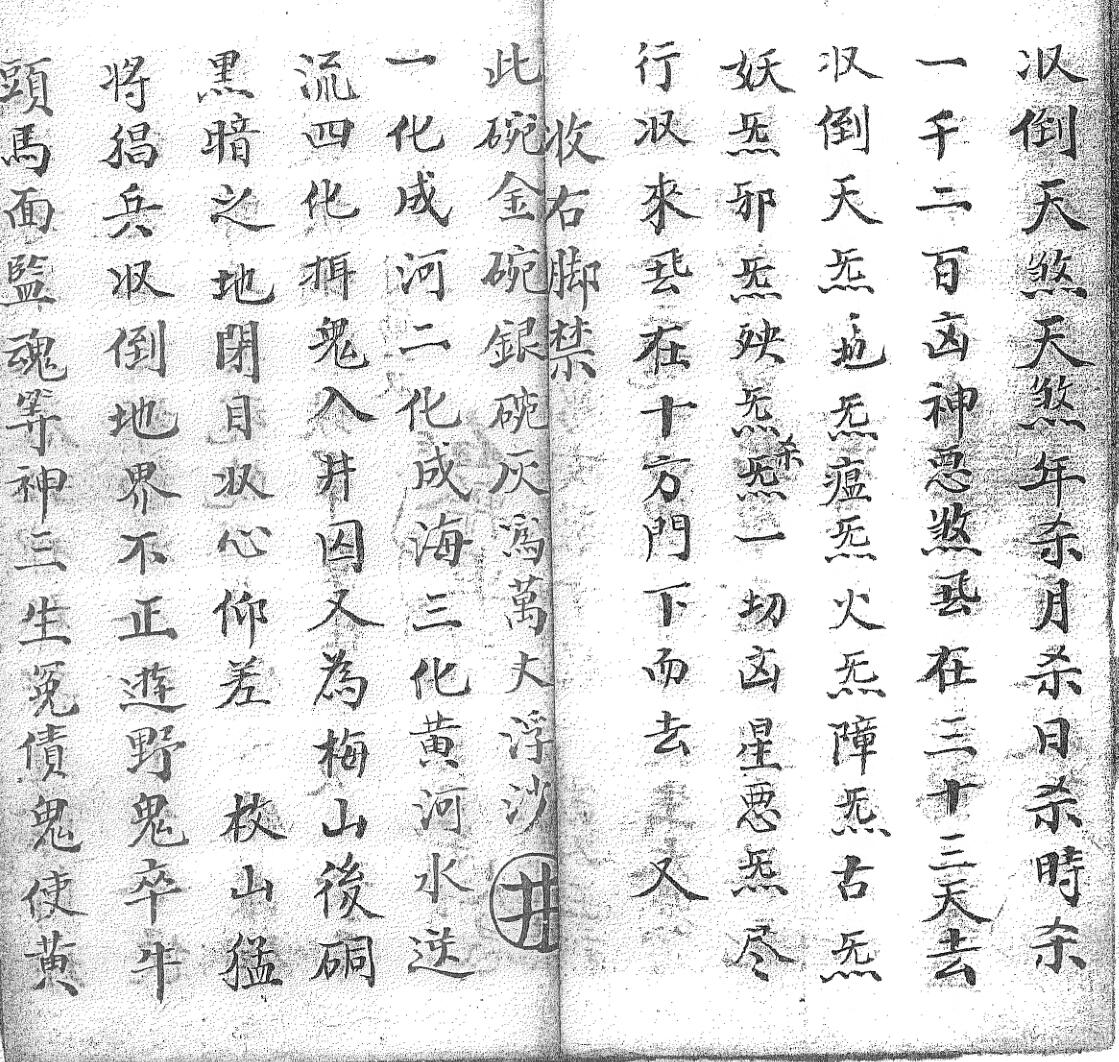 収倒天煞天煞年杀月杀日杀時杀
一千二百凶神恶煞丢在三十三天去
収倒天炁地炁瘟炁火炁障炁古炁
妖炁邪炁殃炁炁一切凶星恶炁尽
杀
行収來丢在十方門下而去 又
收右脚禁
此碗金碗銀碗灰為萬丈浮沙 井
一化成河二化成海三化黄河水逆
流四化揖鬼入井囚又為梅山後硐
黑暗之地閉目収心仰差 枚山猛
将猖兵収倒地界不正遊野鬼卒牛
頭馬面監魂等神三生冤債鬼使黄